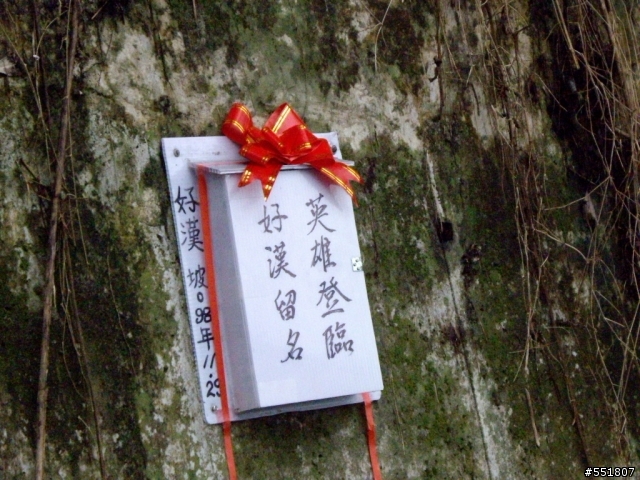 英雄登臨
好漢留名
好漢坡。98年11.29
#551807